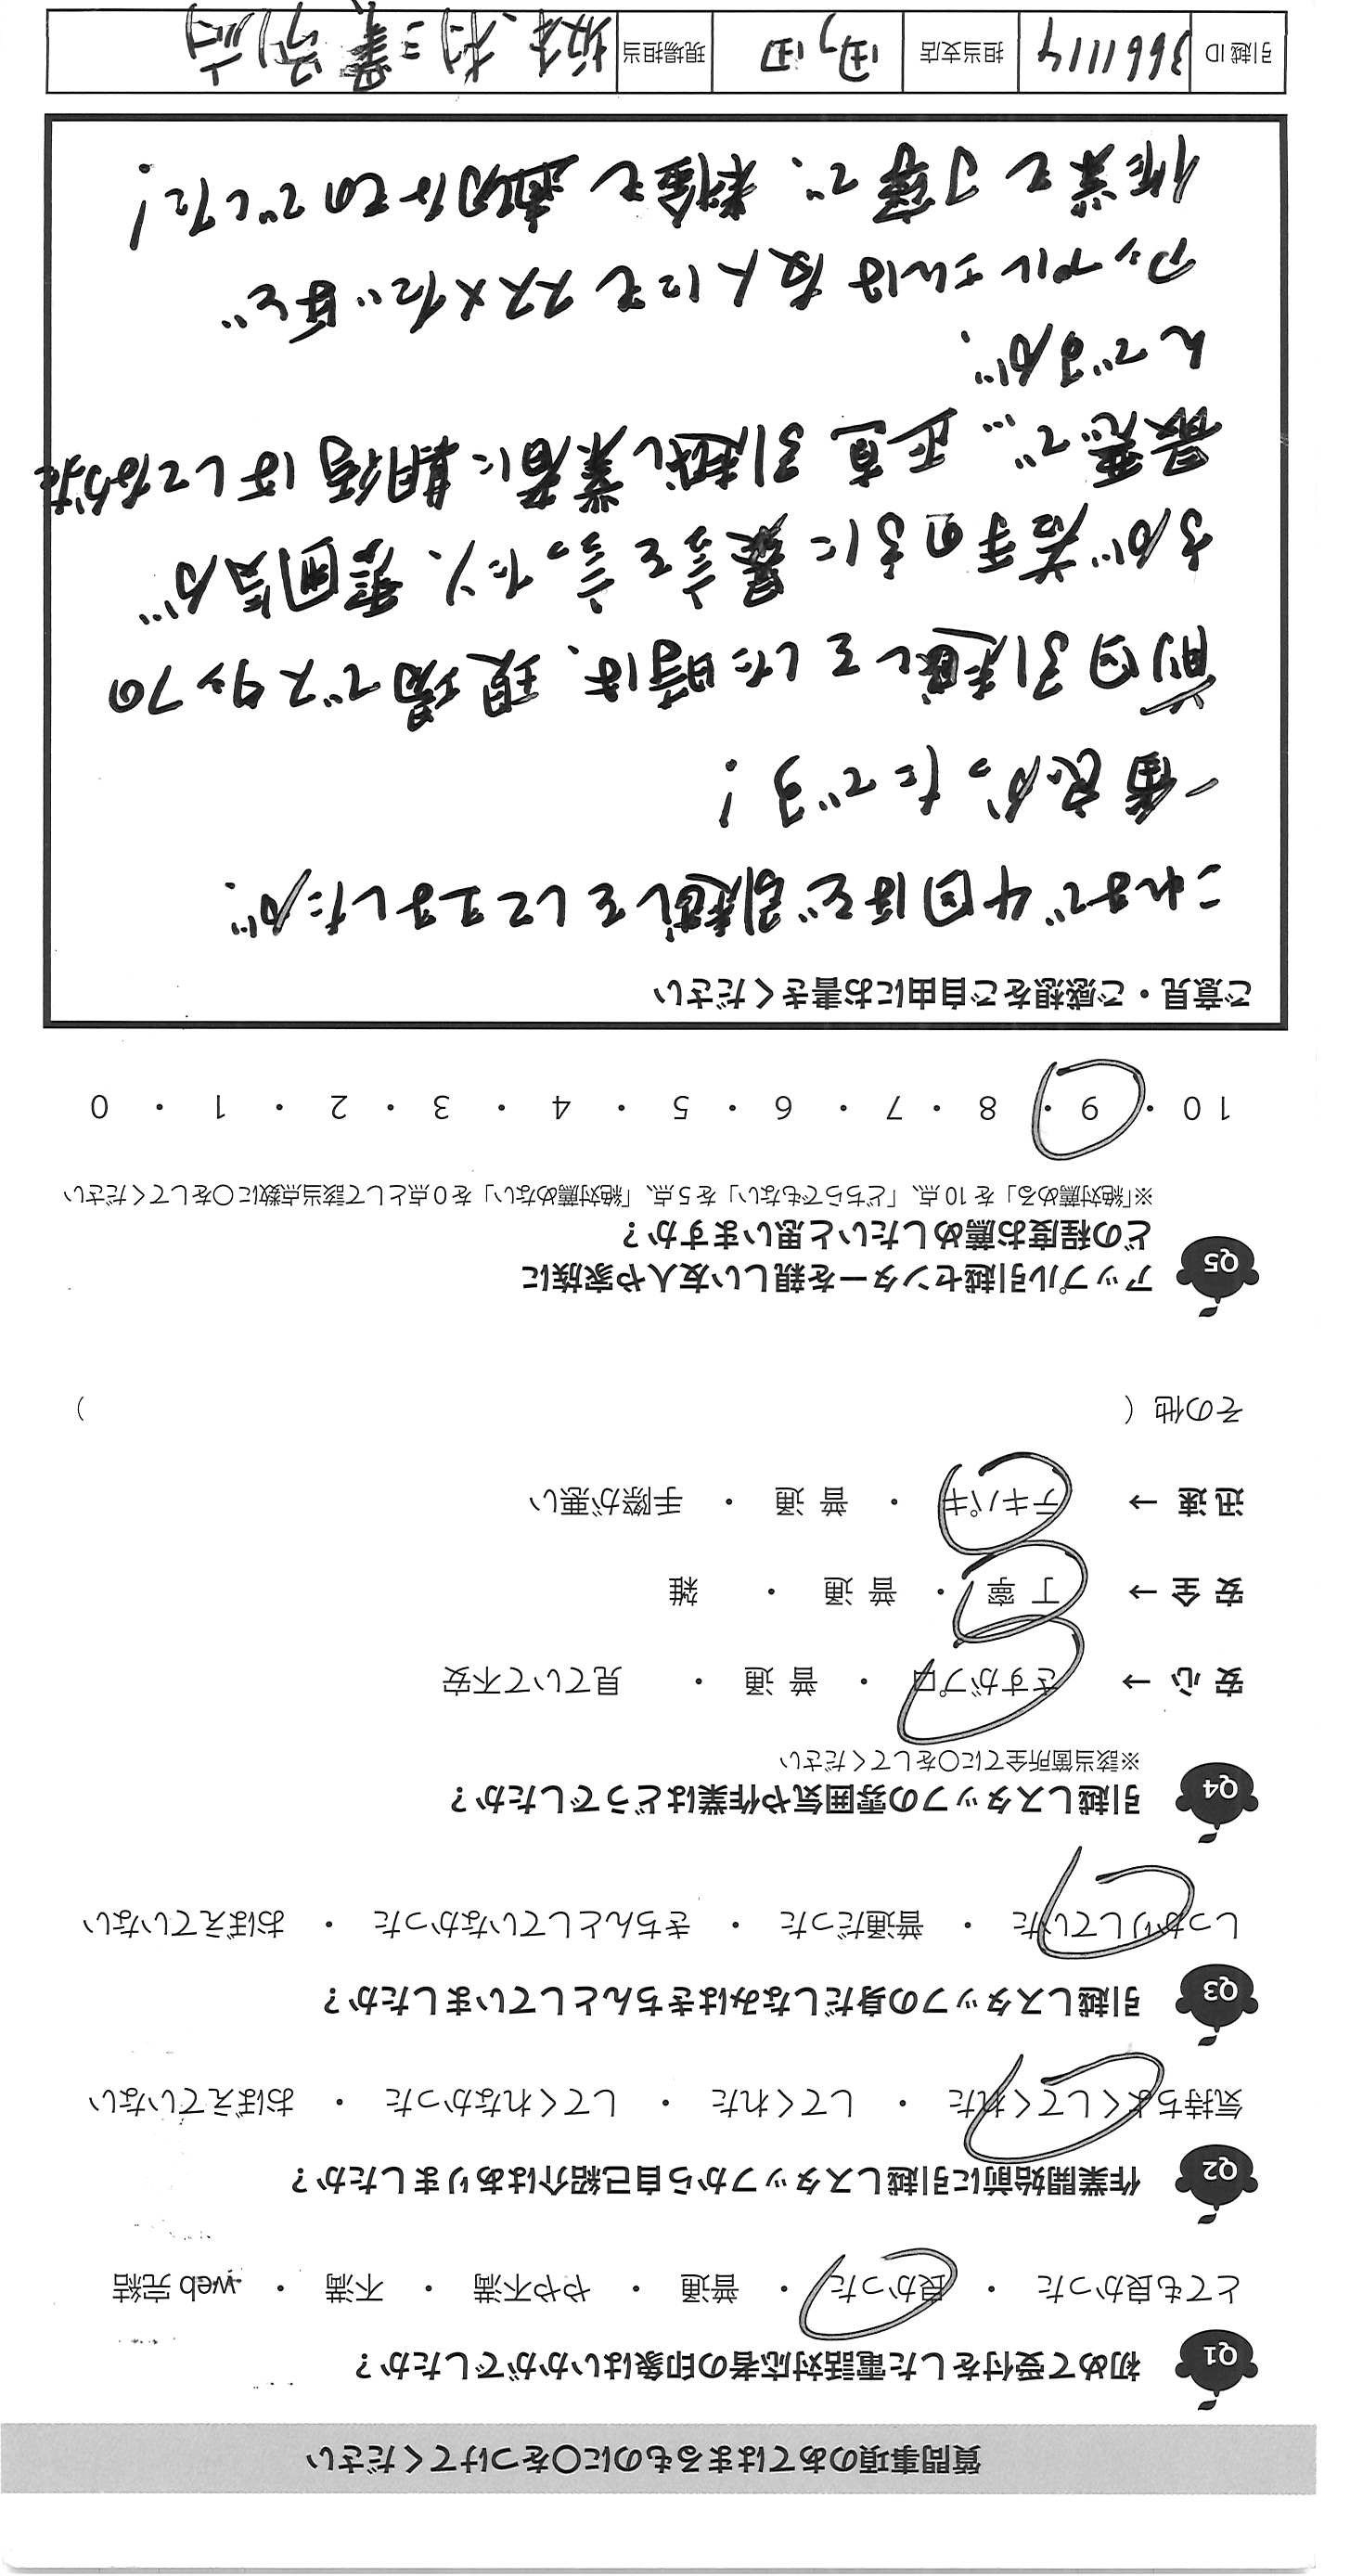 質問事項のあてはまるものに〇をつけてください
Q1 初めて受付をした電話対応者の印象はいかがでしたか？
とても良かった ・ 良かった ・ 普通 ・ やや不満 ・ 不満 ・ web 完結
Q2 作業開始前に引越しスタッフから自己紹介はありましたか？
気持ちよくしてくれた ・ してくれた ・ してくれなかった ・ おぼえていない
Q3 引越しスタッフの身だしなみはきちんとしていましたか？
しっかりしていた ・ 普通だった ・ きちんとしていなかった ・ おぼえていない
Q4 引越しスタッフの雰囲気や作業はどうでしたか？
※該当箇所全てに〇をしてください
安 心 → さすがプロ ・ 普 通 ・ 見ていて不安
安 全 → 丁 寧 ・ 普 通 ・ 雑
迅 速 → テキパキ ・ 普 通 ・ 手際が悪い
その他（ ）
Q5 アップル引越センターを親しい友人や家族に
どの程度お薦めしたいと思いますか？
※「絶対薦める」を 10 点、「どちらでもない」を 5 点、「絶対薦めない」を 0 点として該当点数に〇をしてください
10 ・ 9 ・ 8 ・ 7 ・ 6 ・ 5 ・ 4 ・ 3 ・ 2 ・ 1 ・ 0
ご意見・ご感想をご自由にお書きください
これまで4回ほど引越しをして王ましたが、
一番良かったです！
前回引越しをした時は、現場でスタッフの
方が若手の方に暴言を言ったり、雰囲気が
最悪で… 正直引越し業者に期待はしてなかった
んですが、
アップルさんは友人にもススメたいほど
作業も丁寧で、料金も適切なものでした！
引越 ID 3661114 担当支店 町田 現場担当